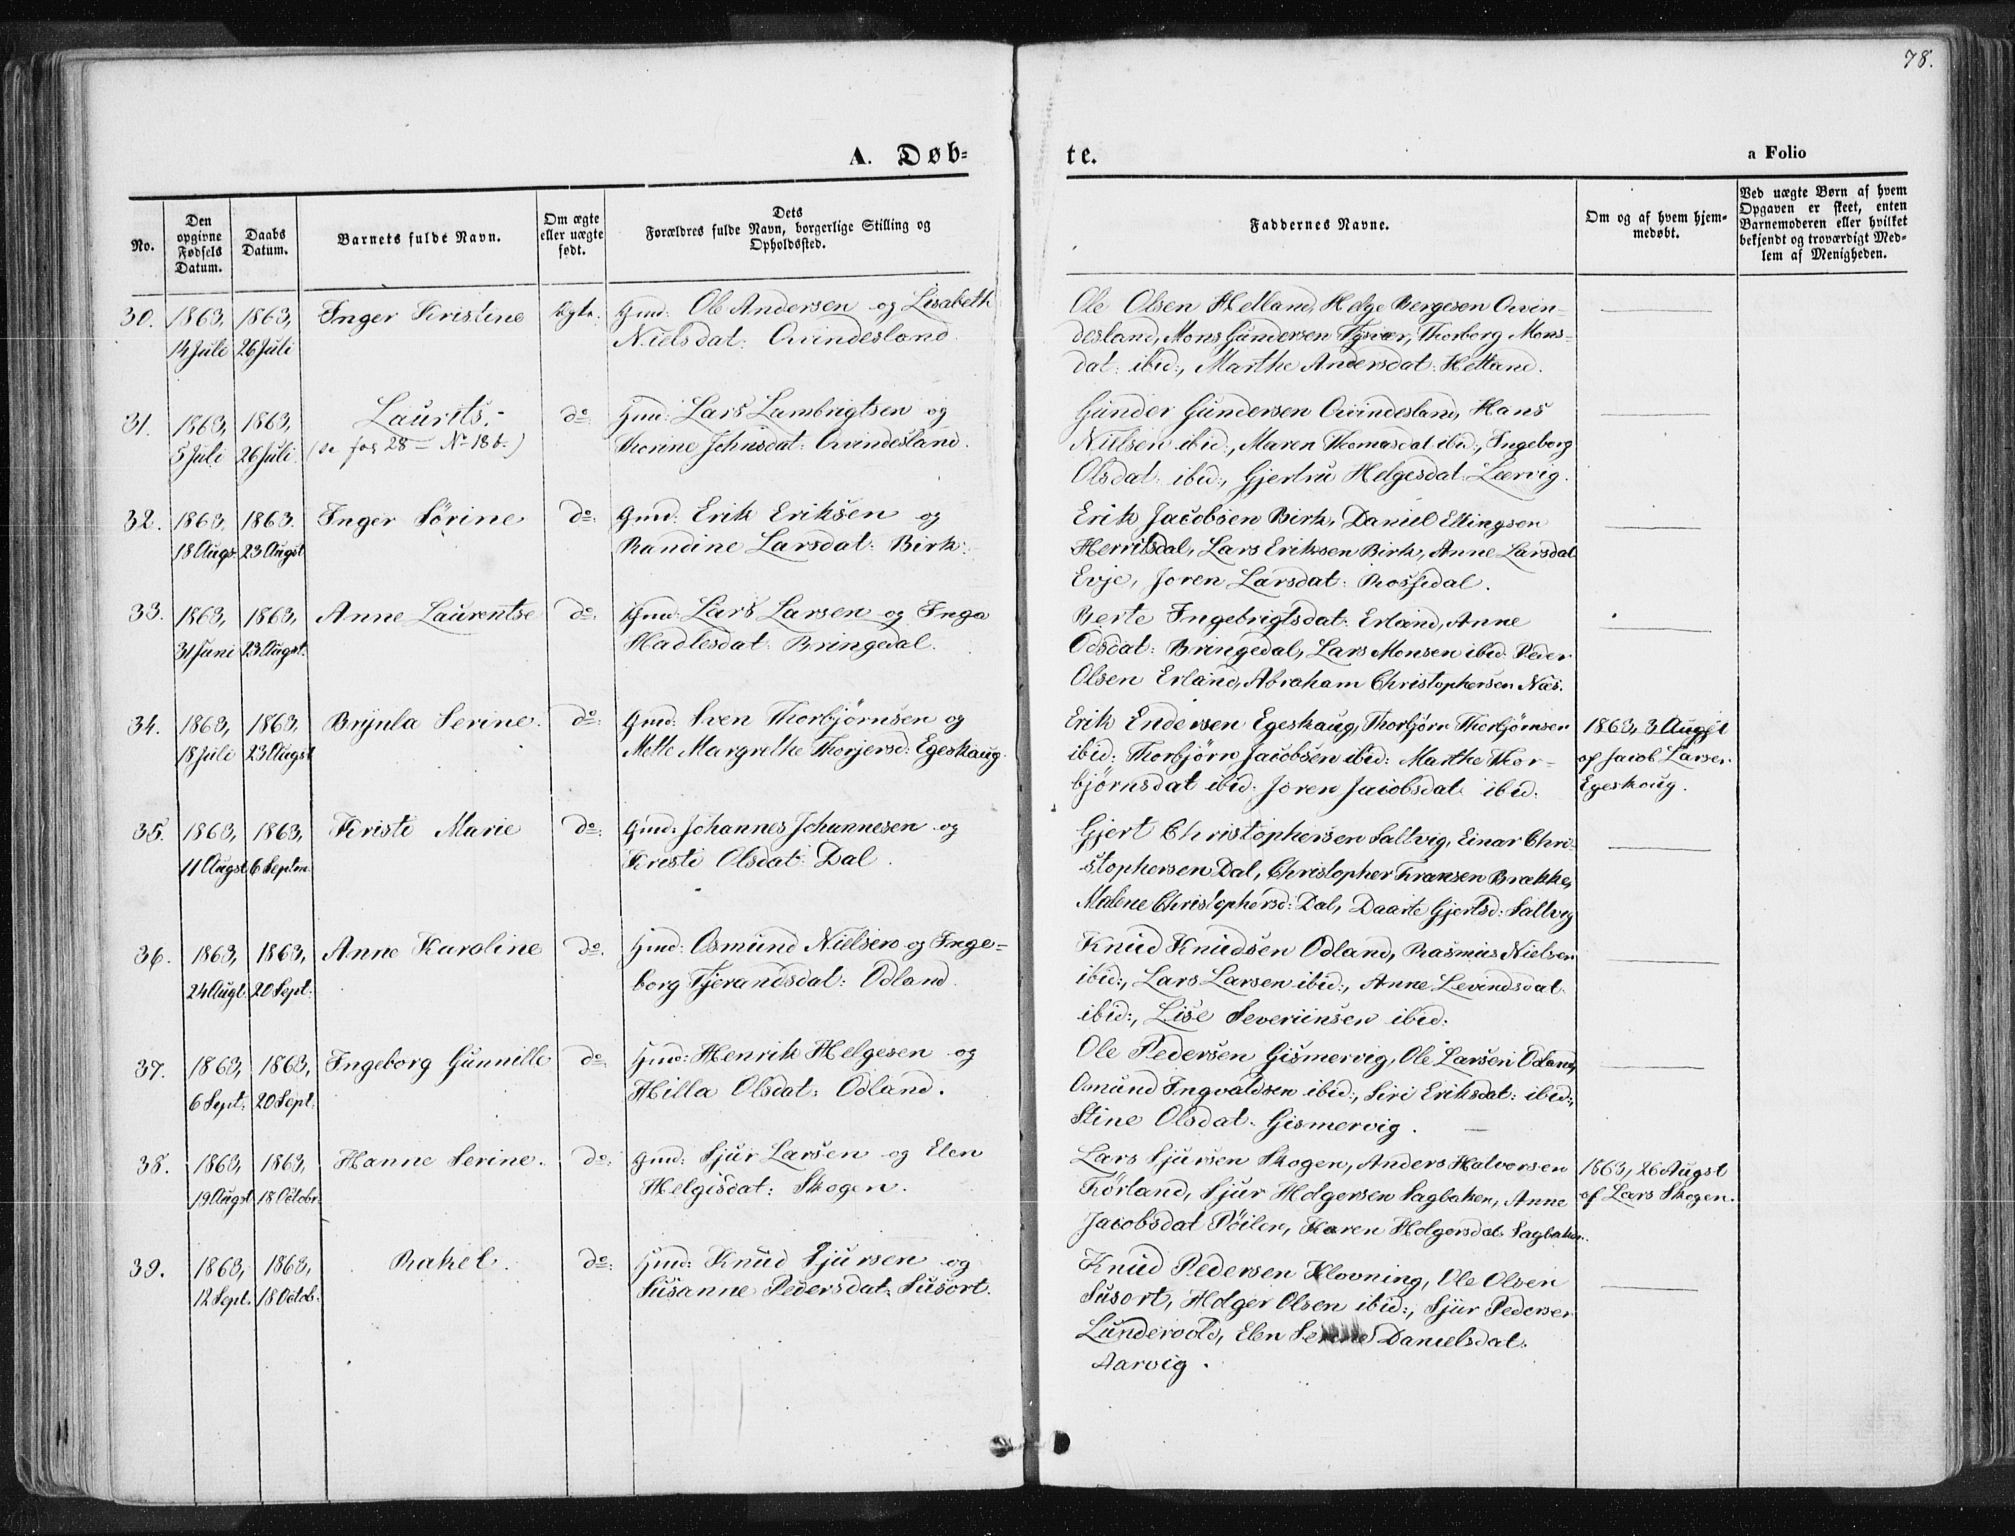 78.
A. Døb-
te.
a Folio
No.
Den opgivne Fødsels Datum.
Daabs Datum.
Barnets fulde Navn.
Om ægte eller uægte født.
Dets Forældres fulde Navn, borgerlige Stilling og Opholdssted.
Faddernes Navne.
Om og af hvem hjemmedøbt.
Ved uægte Børn af hvem Opgaven er skeet, enten Barnemoderen eller hvilket bekjendt og troværdigt Medlem af Menigheden.
30. 1863, 1863, Inger Kristine Ægte. Gmd: Ole Andersen og Lisabeth
14 Juli 26 Juli Nielsdat: Qvindesland.
Ole Olsen Hetland, Helge Bergesen Qvin-
desland, Mons Gundersen Tysvær, Thorborg Mons-
dat: ibid:, Marthe Andersdat: Hetland.
31. 1863, 1863, Laurits. d<u>o</u>: Hmd: Lars Lambrigtsen og
5 Juli 26 Juli (se fol 28 - No 18 b.) Thorine Johnsdat: Qvindesland.
Gunder Gundersen Qvindesland, Hans
Nielsen ibid:, Maren Thomasdat ibid:, Ingeborg
Olsdat: ibid:, Gjertru Helgesdat: Lærvig.
32. 1863, 1863. Inger Sørine do: Gmd: Erik Eriksen og
18 Augs 23 Augst Randine Larsdat: Birk.
Erik Jacobsen Birk, Daniel Ellingsen
Herrilsdal, Lars Eriksen Birk, Anne Larsdat
Evje, Joren Larsdat: Rossedal.
33. 1863, 1863, Anne Laurentse do: Gmd: Lars Larsen og Inga
31 Juni 23 Augst. Hadlesdat: Bringedal.
Berte Ingebrigtsdat: Erland, Anne
Odsdat: Bringedal, Lars Monsen ibid: Peder
Olsen Erland, Abraham Christophersen Næs.
34. 1863, 1863, Brynla Serine. do: Gmd: Sven Thorbjørnsen og
18 Juli 23 Augst Mette Margrethe Thorjersd: Egeskaug.
Erik Endersen Egeskaug, Thorbjørn Thorbjørnsen
ibid: Thorbjørn Jacobsen ibid: Marthe Thor-
bjørnsdat ibid: Joren Jacobsdat ibid:
1863, 3 Augst
af Jacob Larsen
Egeskoug.
35. 1863, 1863, Kristi Marie do: Gmd: Johannes Johannesen og
11 Augst 6 Septm. Kristi Olsdat: Dal.
Gjert Christophersen Saltvig, Einar Chri-
stophersen Dal, Christopher Fransen Brække,
Malene Christophersd: Dal, Daarte Gjertsd: Saltvig
36. 1863, 1863, Anne Karoline do. Hmd: Osmund Nielsen og Inge-
24 Augt. 20 Sept: borg Tjerandsdat: Odland.
Knud Knudsen Odland, Rasmus Nielsen
ibid:, Lars Larsen ibid:, Anne Levindsdat
ibid:, Lise Severiinsen ibid:
37. 1863, 1863, Ingeborg Gunnille do: Hmd: Henrik Helgesen og
6 Sept: 20 Sept: Hilla Olsdat: Odland.
Ole Pedersen Gismervig, Ole Larsen Odland,
Osmund Ingvaldsen ibid:, Siri Eriksdat: ibid:,
Stine Olsdat. Gismervig.
38. 1863, 1863, Hanne Serine. do: Gmd: Sjur Larsen og Elen
19 Augst 18 Octobr. Helgisdat: Skogen.
Lars Sjursen Skogen, Anders Halvorsen
Førland, Sjur Holgersen Sagbaken, Anne
Jacobsdat Pøiler, Karen Holgersdat Sagbaken.
1863, 26 Augst
af Lars Skogen.
39. 1863, 1863, Rakel. do: Hmd: Knud Sjursen og
12 Sept. 18 Octob. Susanne Pedersdat: Susort.
Knud Pedersen Klovning, Ole Olsen
Susort, Holger Olsen ibid:, Sjur Pedersen
Lundevold, Elen Danielsdat.
Aarvig.